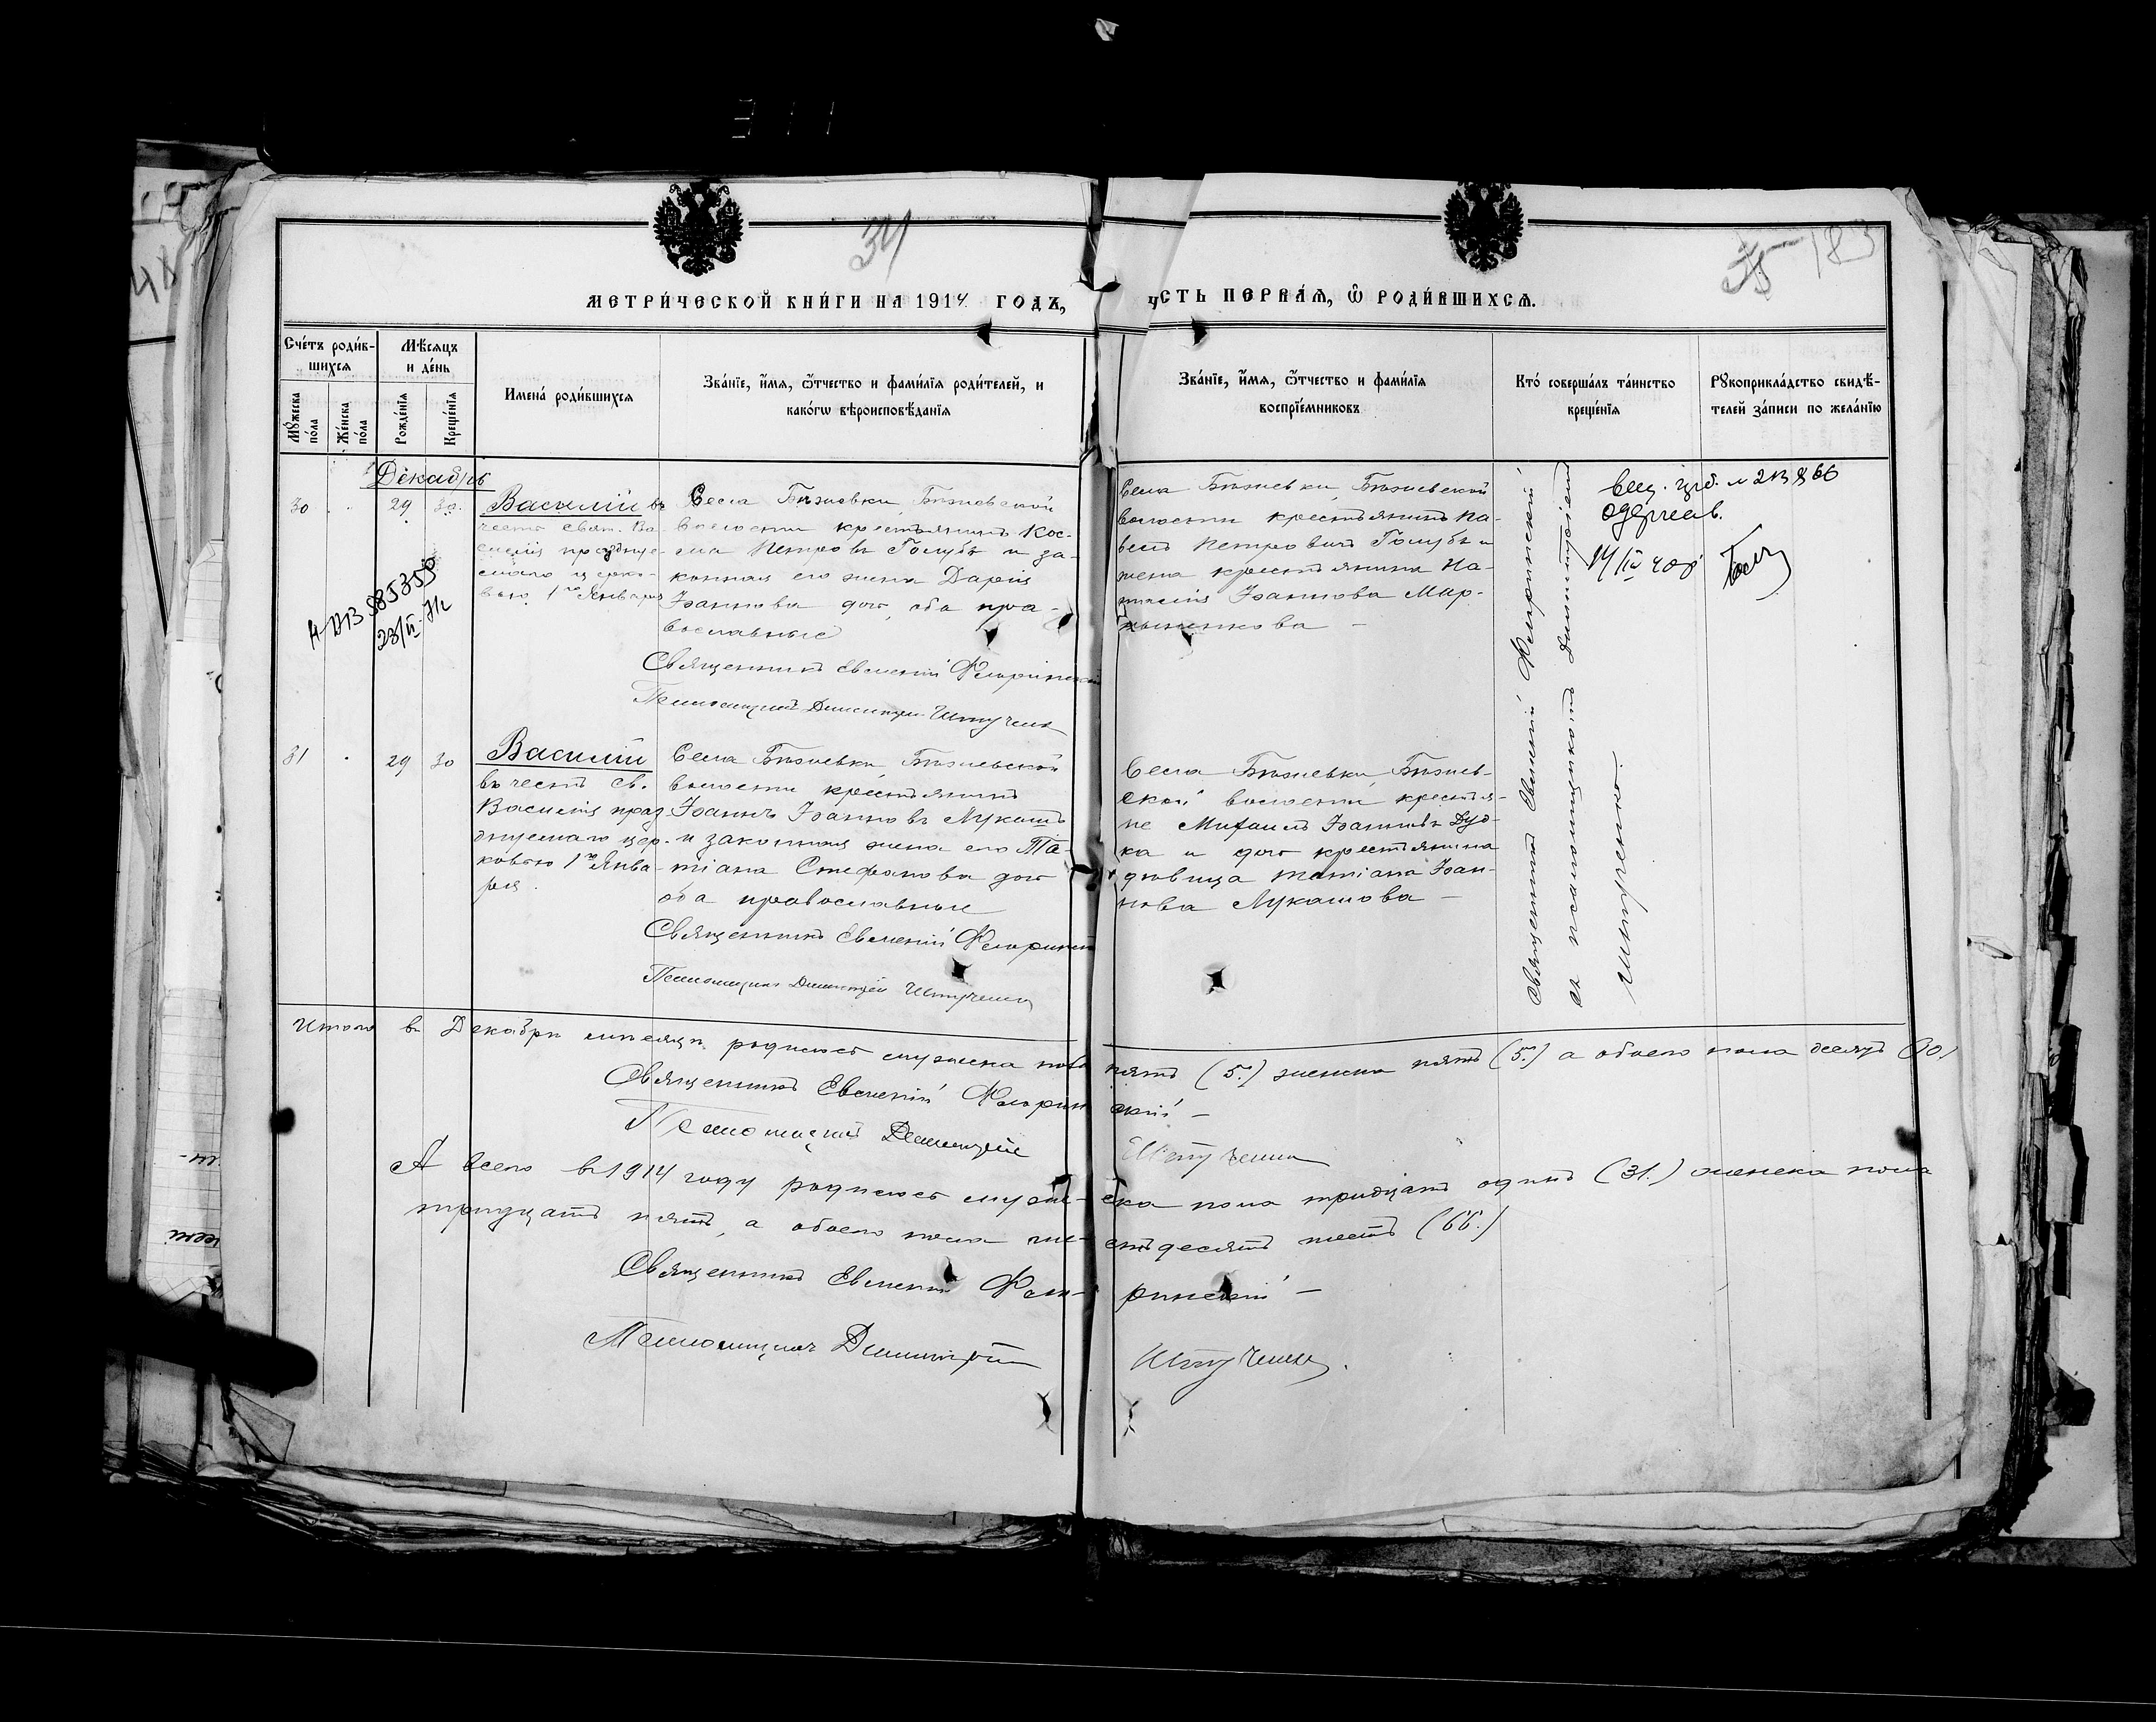 34
35 183
МЕТРИ́ЧЕСКОЙ КНИ́ГИ НА 1914 ГОДЪ,
ЧСТЬ ПЕРВА́Я, Ѽ РОДИ́ВШИХСЯ.
Сче́тъ роди́в-
шихся
Мѣ́сяцъ
и де́нь
Мꙋ́жеска
по́ла
Же́нска
по́ла
Рожде́нїя
Креще́нїя
Имена́ роди́вшихся
Зва́нїе, и́мя, ѻ҆́тчество и фами́лїя роди́телей, и
како́гѡ вѣроисповѣ́данїя
Зва́нїе, и́мя, ѻ҆́тчество и фами́лїя
воспрїе́мниковъ
Кто́ соверша́лъ та́инство
креще́нїя
Рꙋкоприкла́дство свидѣ́-
телей за́писи по жела́нїю
Декабрь
30 29 30
Василій въ
честь свят. Ва-
силія празднуе-
маго церко-
вью 1го Января
23/II
Села Бѣжевки, Бѣжевской
волости крестьянинъ Кос-
ма Петровъ Голубъ и за-
конная его жена Дарія
Іоаннова доч. оба пра-
вославные
Священникъ Евменій Флоринскій
Псаломщикъ Димитрій
Села Бѣжевки, Бѣжевской
волости крестьянинъ Па-
велъ Петровичъ Голубъ и
жена крестьянина На-
талія Іоаннова Мар-
тыненкова —
одержав.
14/IV 40р
Священникъ Евменій Флоринскій
съ псаломщикомъ Димитріемъ
31 29 30
Василій
въ честь св.
Василія праз-
днуемаго цер-
ковью 1го Янва-
ря.
Села Бѣжевки, Бѣжевской
волости крестьянинъ
Іоаннъ Іоанновъ Лукашъ
и законная жена его Та-
тіана Стефанова доч.
оба православные
Священникъ Евменій Флоринскій
Псаломщикъ Димитрій
Села Бѣжевки, Бѣжев-
ской волости, крестья-
не Михаилъ Іоанновъ Дуд-
ка и доч. крестьянина
дѣвица Татіана Іоан-
нова Лукашова —
Итого въ Декабрѣ мѣсяцѣ родилось мужеска пола пять (5.) женска пять (5.) а обоего пола десять (10.)
Священникъ Евменій Флоринскій —
Псаломщикъ Димитрій
А всего въ 1914 году родилось мужеска пола тридцать одинъ (31.) женска пола
тридцать пять, а обоего пола шестьдесятъ шесть (66.)
Священникъ Евменій Флоринскій —
Псаломщикъ Димитрій